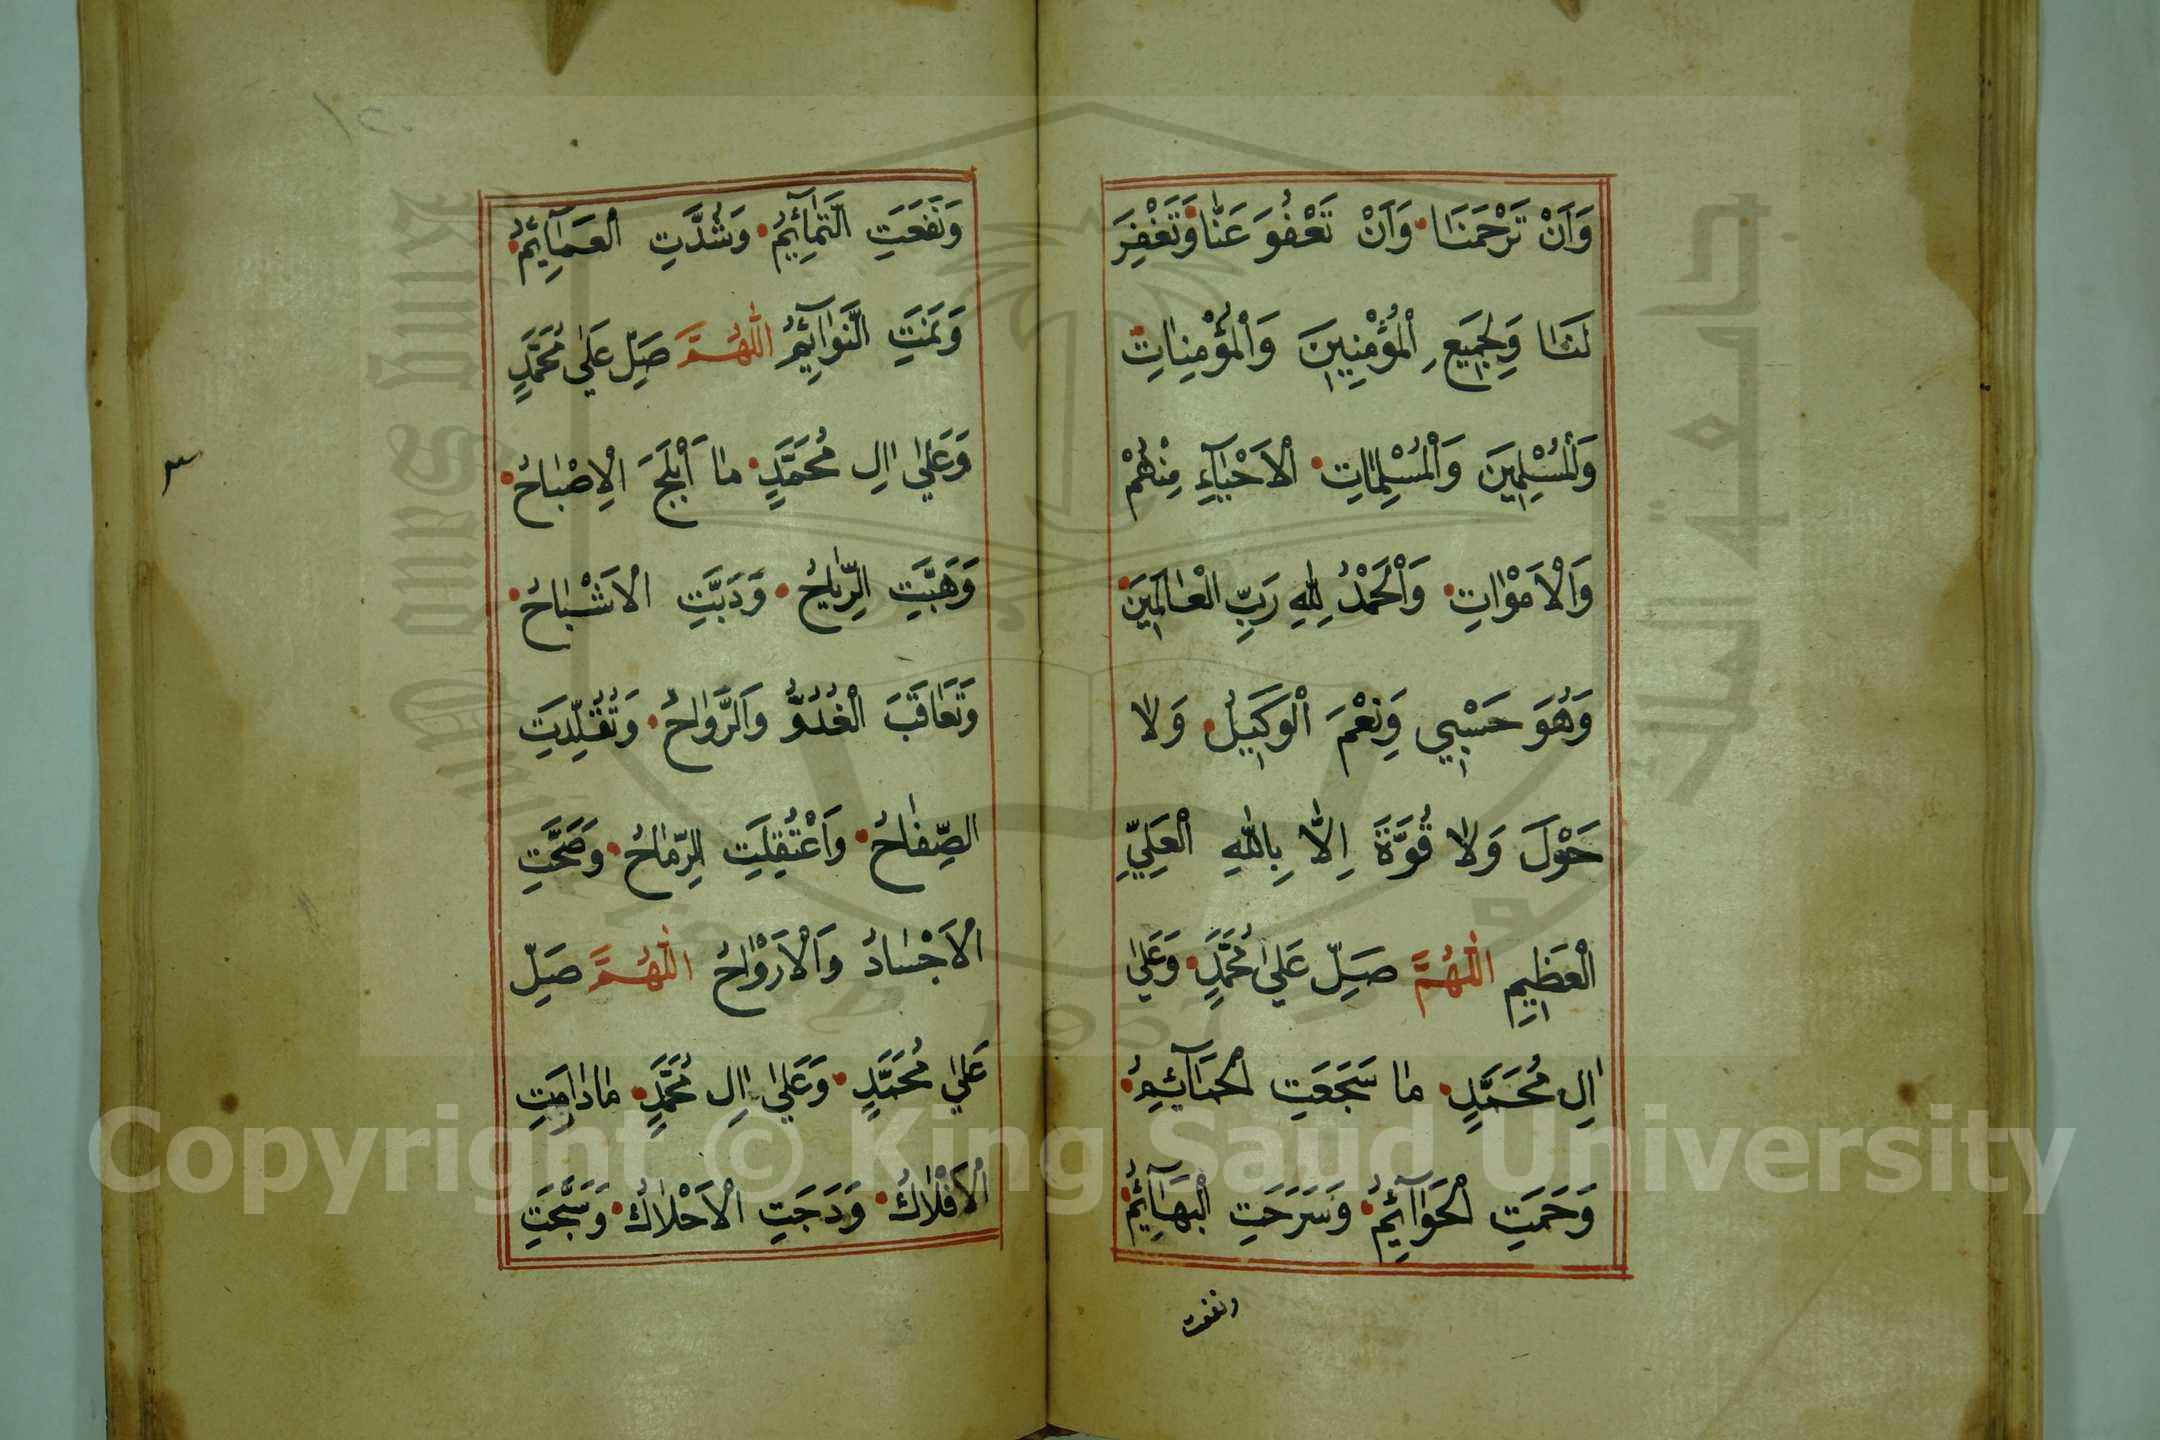 وَاَنْ تَرْحَمَنَا وَاَنْ تَعْفُوَ عَنَّا وَتَغْفِرَ
لَنَا وَلِجَمِيعِ الْمُؤْمِنِينَ وَالْمُؤْمِنَاتِ
وَالْمُسْلِمِينَ وَالْمُسْلِمَاتِ الْاَحْيَآءِ مِنْهُمْ
وَالْاَمْوَاتِ وَالْحَمْدُ لِلّٰهِ رَبِّ الْعَالَمِينَ
وَهُوَ حَسْبِي وَنِعْمَ الْوَكِيلُ وَلَا
حَوْلَ وَلَا قُوَّةَ اِلَّا بِاللّٰهِ الْعَلِيِّ
الْعَظِيمِ اَللّٰهُمَّ صَلِّ عَلٰى مُحَمَّدٍ وَعَلٰى
اٰلِ مُحَمَّدٍ مَا سَجَعَتِ الْحَمَآئِمُ
وَحَمَتِ الْحَوَآئِمُ وَسَرَحَتِ الْبَهَآئِمُ
ونفعت
وَنَفَعَتِ التَّمَآئِمُ وَشُدَّتِ الْعَمَآئِمُ
وَنَمَتِ النَّوَآئِمُ اَللّٰهُمَّ صَلِّ عَلٰى مُحَمَّدٍ
وَعَلٰى اٰلِ مُحَمَّدٍ مَا اَبْلَجَ الْاِصْبَاحُ
وَهَبَّتِ الرِّيَاحُ وَدَبَّتِ الْاَشْبَاحُ
وَتَعَاقَبَ الْغُدُوُّ وَالرَّوَاحُ وَتُقُلِّدَتِ
الصِّفَاحُ وَاعْتُقِلَتِ الرِّمَاحُ وَصَحَّتِ
الْاَجْسَادُ وَالْاَرْوَاحُ اَللّٰهُمَّ صَلِّ
عَلٰى مُحَمَّدٍ وَعَلٰى اٰلِ مُحَمَّدٍ مَا دَامَتِ
الْاَفْلَاكُ وَدَجَتِ الْاَحْلَاكُ وَسَبَّحَتِ
جامعة الملك سعود
King Saud University
1957
Copyright © King Saud University